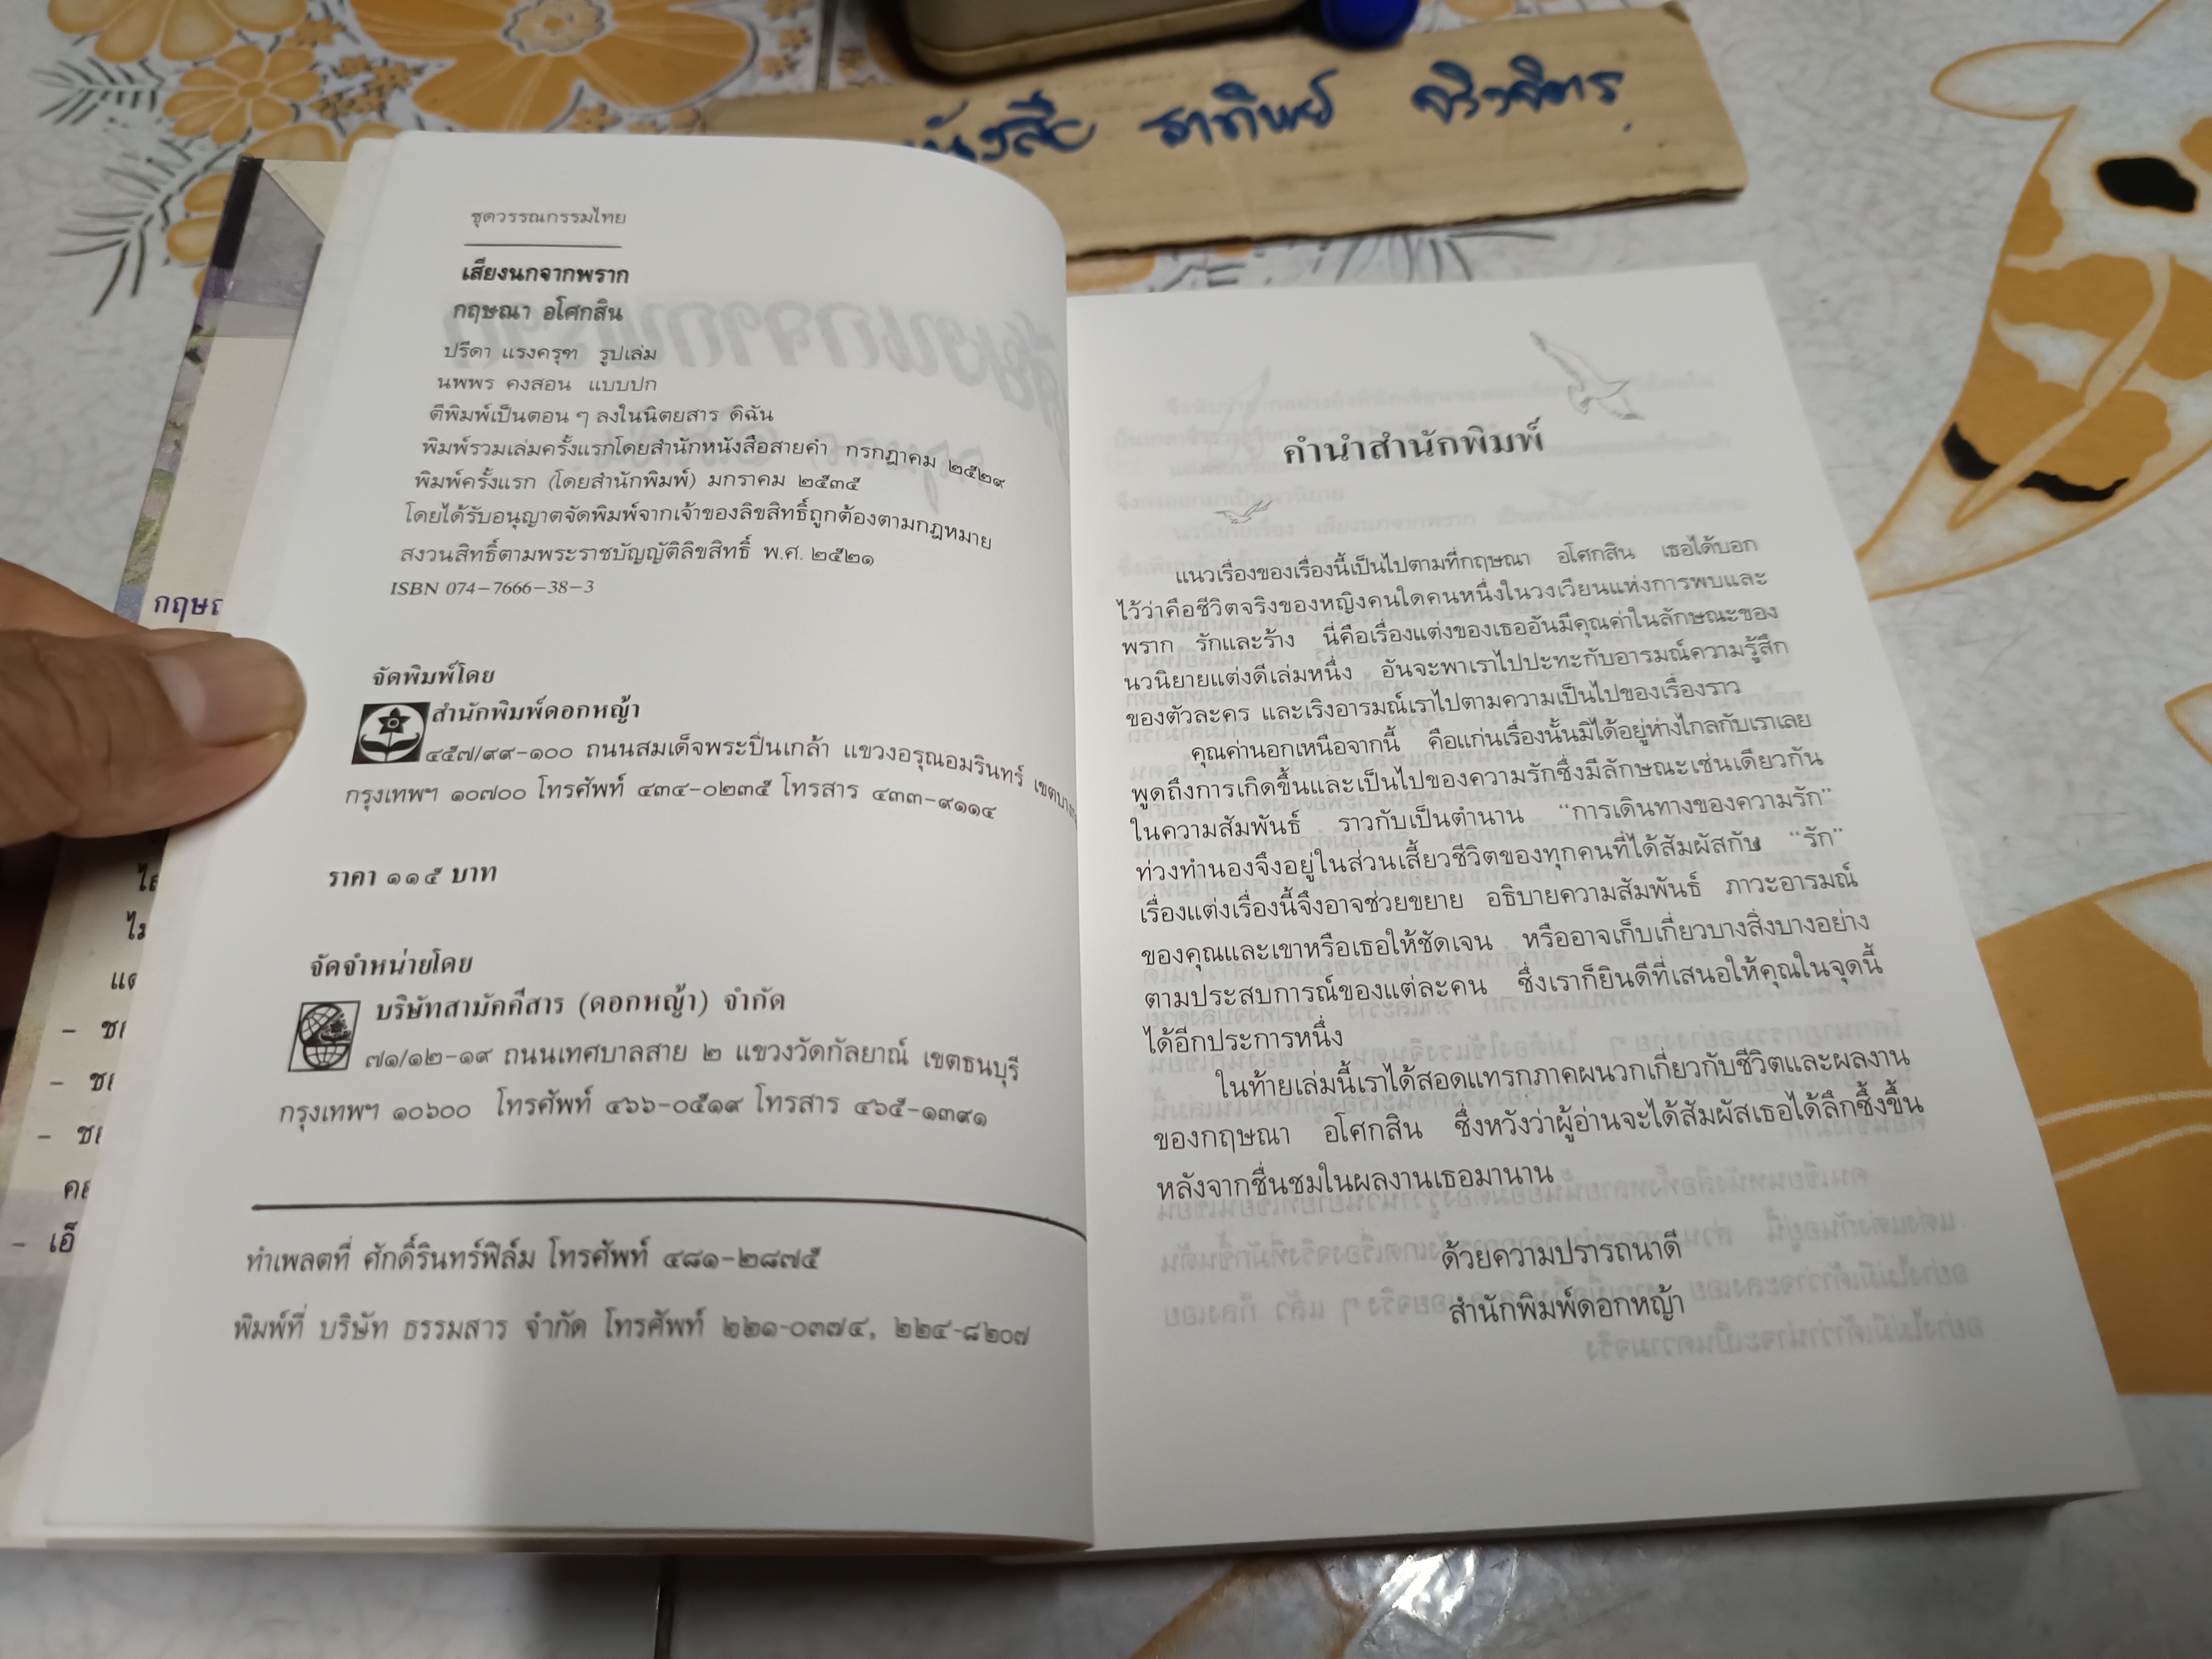 หนังสือ ธาทิพย์ จิววิจิตร
ชุดวรรณกรรมไทย
เสียงนกจากพราก
กฤษณา อโศกสิน
ปรีดา แรงครุฑ รูปเล่ม
นพพร คงสอน แบบปก
ตีพิมพ์เป็นตอน ๆ ลงในนิตยสาร ดิฉัน
พิมพ์รวมเล่มครั้งแรกโดยสำนักหนังสือสายคำ กรกฎาคม ๒๕๒๙
พิมพ์ครั้งแรก (โดยสำนักพิมพ์) มกราคม ๒๕๓๕
โดยได้รับอนุญาตจัดพิมพ์จากเจ้าของลิขสิทธิ์ถูกต้องตามกฎหมาย
สงวนสิทธิ์ตามพระราชบัญญัติลิขสิทธิ์ พ.ศ. ๒๕๒๑
ISBN 074-7666-38-3
จัดพิมพ์โดย
สำนักพิมพ์ดอกหญ้า
๔๕๗/๙๙-๑๐๐ ถนนสมเด็จพระปิ่นเกล้า แขวงอรุณอมรินทร์
กรุงเทพฯ ๑๐๗๐๐ โทรศัพท์ ๔๓๔-๐๒๓๕ โทรสาร ๔๓๓-๙๑๑๔
ราคา ๑๑๕ บาท
จัดจำหน่ายโดย
บริษัทสามัคคีสาร (ดอกหญ้า) จำกัด
๗๑/๑๒-๑๙ ถนนเทศบาลสาย ๒ แขวงวัดกัลยาณ์ เขตธนบุรี
กรุงเทพฯ ๑๐๖๐๐ โทรศัพท์ ๔๖๖-๐๕๑๙ โทรสาร ๔๖๕-๑๓๙๑
ทำเพลตที่ ศักดิ์รินทร์ฟิล์ม โทรศัพท์ ๔๘๑-๒๘๗๕
พิมพ์ที่ บริษัท ธรรมสาร จำกัด โทรศัพท์ ๒๒๑-๐๓๗๔, ๒๒๔-๘๒๐๗
คำนำสำนักพิมพ์
แนวเรื่องของเรื่องนี้เป็นไปตามที่กฤษณา อโศกสิน เธอได้บอก
ไว้ว่าคือชีวิตจริงของหญิงคนใดคนหนึ่งในวงเวียนแห่งการพบและ
พราก รักและร้าง นี่คือเรื่องแต่งของเธออันมีคุณค่าในลักษณะของ
นวนิยายแต่งดีเล่มหนึ่ง อันจะพาเราไปปะทะกับอารมณ์ความรู้สึก
ของตัวละคร และเริงอารมณ์เราไปตามความเป็นไปของเรื่องราว
คุณค่านอกเหนือจากนี้ คือแก่นเรื่องนั้นมิได้อยู่ห่างไกลกับเราเลย
พูดถึงการเกิดขึ้นและเป็นไปของความรักซึ่งมีลักษณะเช่นเดียวกัน
ในความสัมพันธ์ ราวกับเป็นตำนาน “การเดินทางของความรัก”
ท่วงทำนองจึงอยู่ในส่วนเสี้ยวชีวิตของทุกคนที่ได้สัมผัสกับ “รัก”
เรื่องแต่งเรื่องนี้จึงอาจช่วยขยาย อธิบายความสัมพันธ์ ภาวะอารมณ์
ของคุณและเขาหรือเธอให้ชัดเจน หรืออาจเก็บเกี่ยวบางสิ่งบางอย่าง
ตามประสบการณ์ของแต่ละคน ซึ่งเราก็ยินดีที่เสนอให้คุณในจุดนี้
ได้อีกประการหนึ่ง
ในท้ายเล่มนี้เราได้สอดแทรกภาคผนวกเกี่ยวกับชีวิตและผลงาน
ของกฤษณา อโศกสิน ซึ่งหวังว่าผู้อ่านจะได้สัมผัสเธอได้ลึกซึ้งขึ้น
หลังจากชื่นชมในผลงานเธอมานาน
ด้วยความปรารถนาดี
สำนักพิมพ์ดอกหญ้า